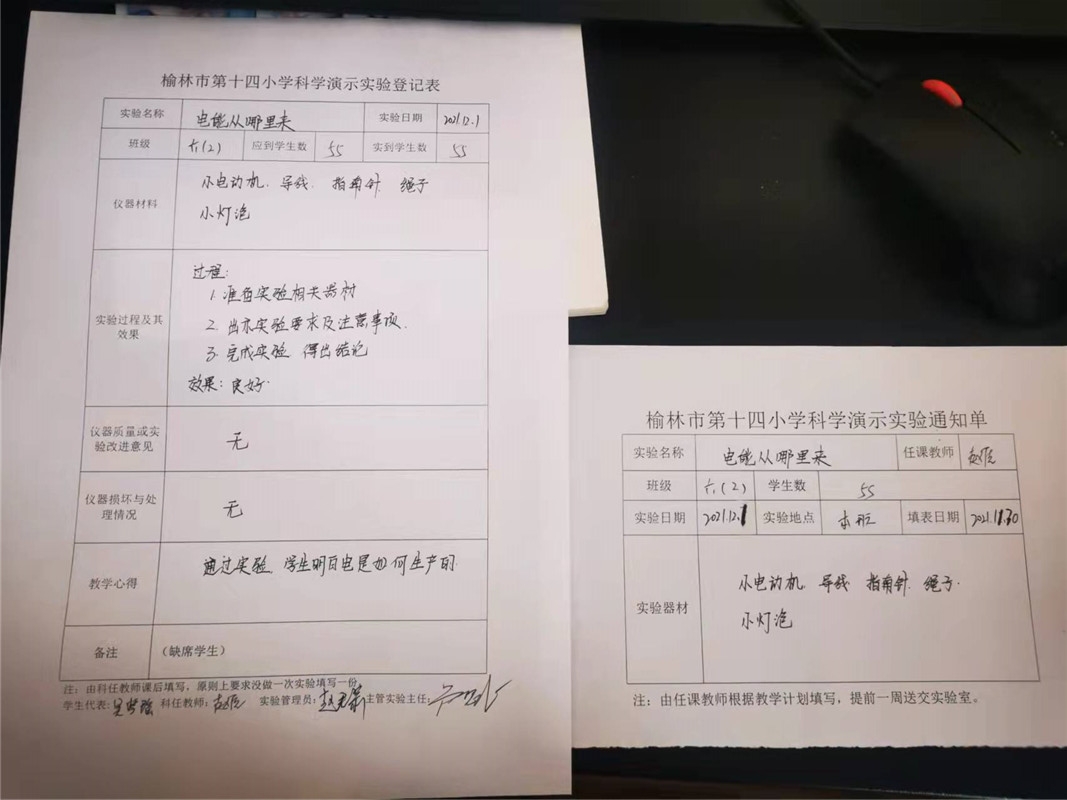 榆林市第十四小学科学演示实验登记表
实验名称 电能从哪里来 实验日期 2021.12.1
班级 六(2) 应到学生数 55 实到学生数 55
仪器材料 小电动机. 导线. 指南针. 绳子
小灯泡
过程:
1. 准备实验相关器材
实验过程及其效果
2. 出示实验要求及注意事项.
3. 完成实验 得出结论
效果: 良好.
仪器质量或实验改进意见 无
仪器损坏与处理情况 无
教学心得 通过实验, 学生明白电是如何生产的.
备注 (缺席学生)
注：由科任教师课后填写，原则上要求没做一次实验填写一份
学生代表: 科任教师: 实验管理员: 主管实验主任:
榆林市第十四小学科学演示实验通知单
实验名称 电能从哪里来 任课教师
班级 六(2) 学生数 55
实验日期 2021.12.1 实验地点 本班 填表日期 2021.11.30
实验器材 小电动机. 导线 指南针. 绳子.
小灯泡
注：由任课教师根据教学计划填写，提前一周送交实验室。